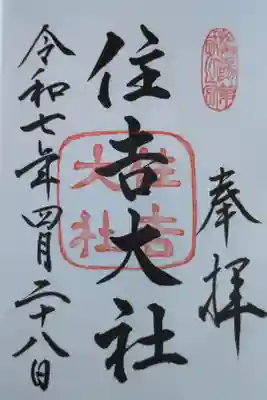 奉拝
住吉大社
住吉大社
令和七年四月二十八日